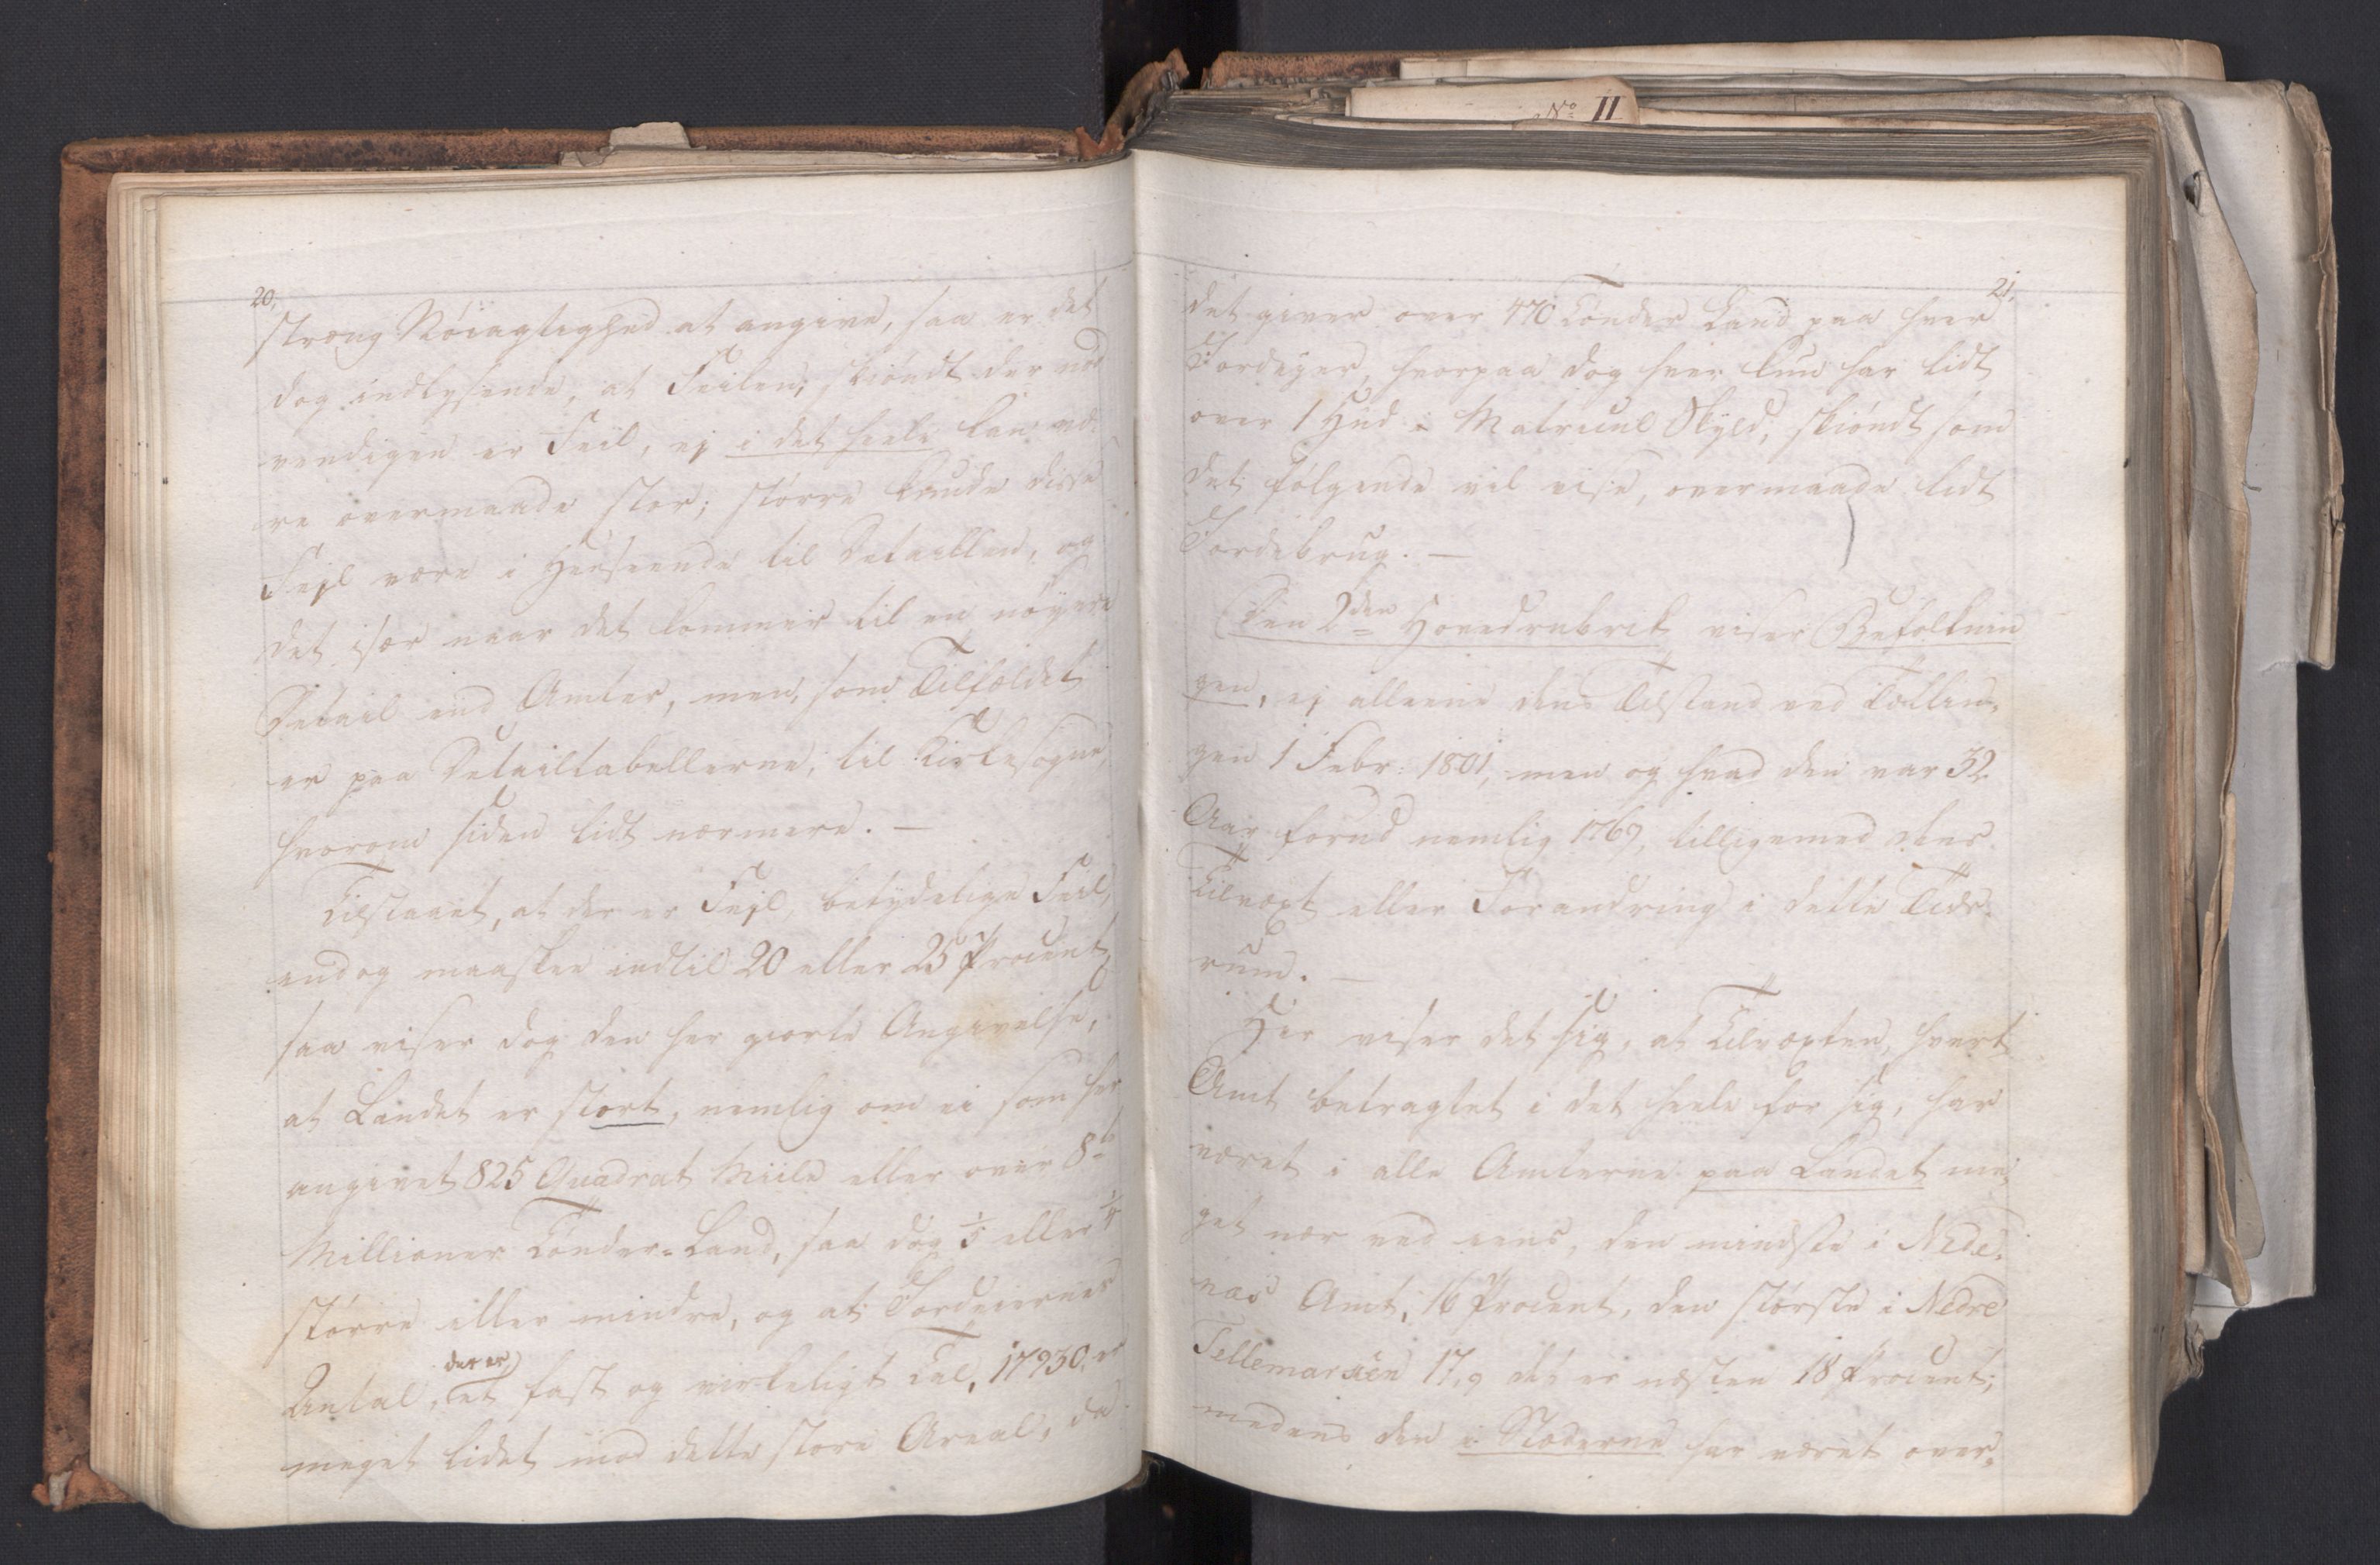 No II
20.
stræng Nöiagtighed at angive, saa er det
dog indlysende, at Feilen, skiöndt der nöd
vendigen er Feil, ej i det heele kan væ
re overmaade stor; större kunde disse
Fejl være i Henseende til Detaillen, og
det især naar det kommer til en nöyere
Detail end Amter, men, som Tilfældet
er paa Detailtabellerne, til Kirkesogne,
hvorom siden lidt nærmere. —
Tilstaaet, at der er Fejl, betydelige Feil,
endog maaskee indtil 20 eller 25 Procent,
saa viser dog den her giorte Angivelse,
at Landet er stort, nemlig om ei som her
angivet 825 Quadrat Miile eller over 8½
Millioner Tönder-Land, saa dog ⅕ eller ¼
större eller mindre, og at Jordeiernes
Antal, der er, et fast og virkeligt Tal, 17930, er
meget lidet mod dette store Areal, da
21.
det giver over 470 Tönder Land paa hver
Jordeyer, hvorpaa dog hver kun har lidt
over 1 Hud i Matricul Skyld, skiöndt som
det fölgende vil vise, overmaade lidt
Jordebrug. —
Den 2den Hovedrubrik viser Befolknin
gen, ej alleene dens Tilstand ved Tællin-
gen 1 Febr: 1801, men og hvad den var 32
Aar forud nemlig 1769, tilligemed dens
Tilvæxt eller Forandring i dette Tids-
rum. —
Her viser det sig, at Tilvæxten, hvert
Amt betragtet i det heele for sig, har
været i alle Amterne paa Landet me-
get nær ved eens, den mindste i Nede-
næs Amt, 16 Procent, den störste i Nedre
Tellemarken 17,9 det er næsten 18 Procent;
medens den i Stæderne har været over-